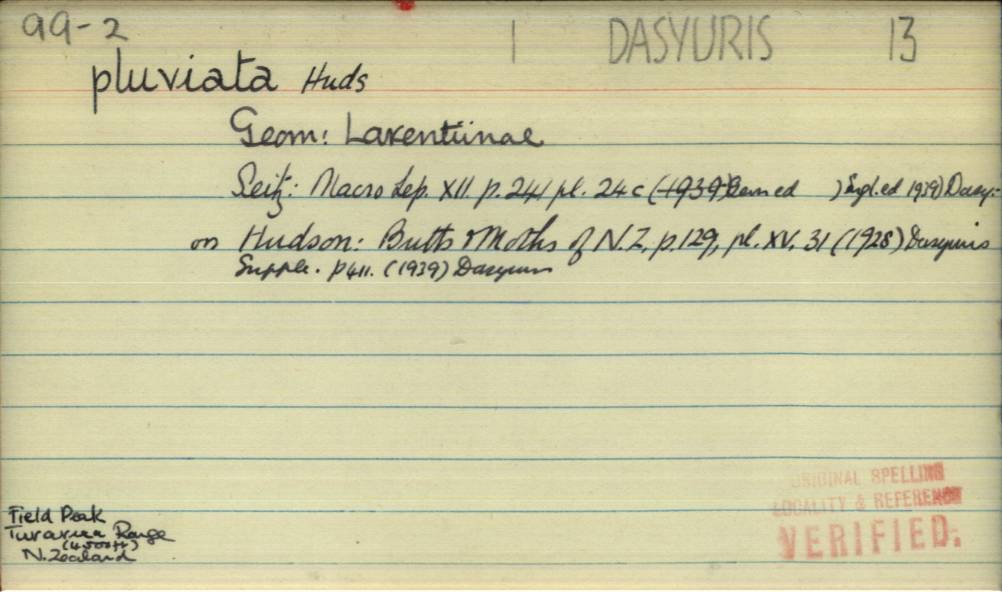 99-2 1 DASYURIS 13
pluviata Huds
Geom: Larentiinae
Seitz: Macro Lep. XII. p. 241 pl. 24 c (1939 ed ) Engl. ed 1939)
on Hudson: Butts & Moths of N.Z. p. 129, pl. XV. 31 (1928) Dasyuris
Supple. p 411. (1939) Dasyuris
ORIGINAL SPELLING
LOCALITY & REFERENCE
VERIFIED.
Field Peak
Range
(4,500 ft)
N. Zealand